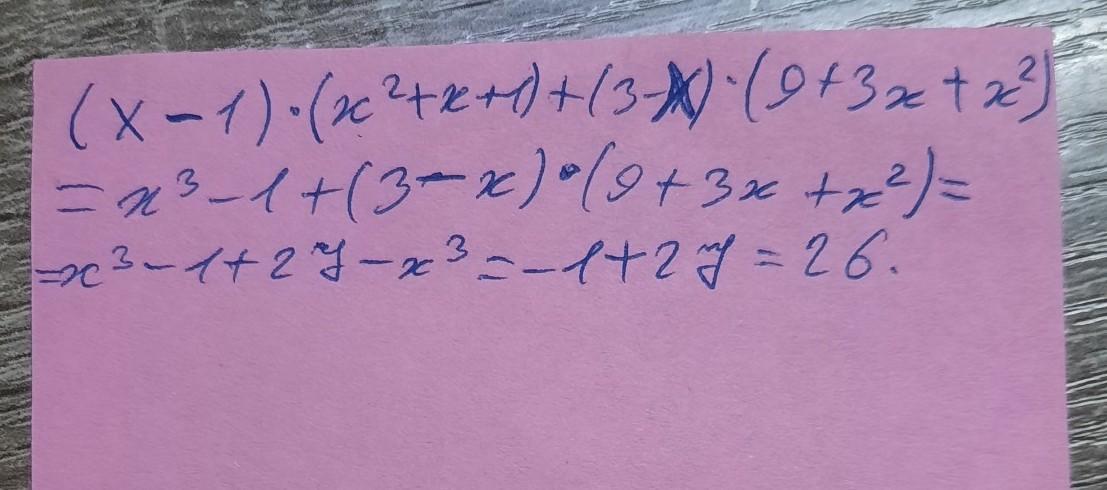 (x-1)·(x²+x+1)+(3-x)·(9+3x+x²)
=x³-1+(3-x)·(9+3x+x²)=
=x³-1+27-x³=-1+27=26.